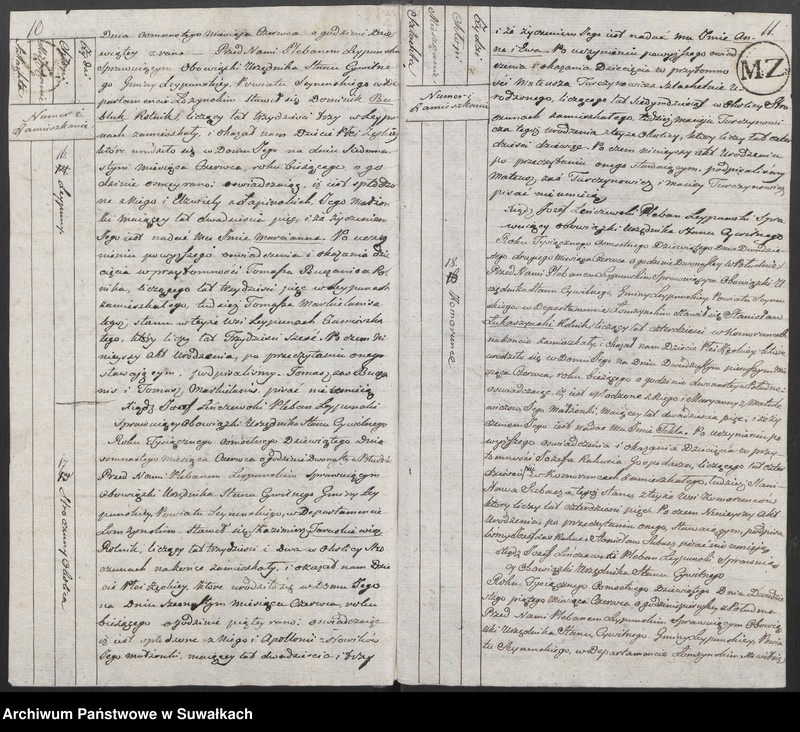 10
Dnia osmnastego Miesiąca Czerwca o godzinie Dzie
wiątey z rana Przed Nami Plebanem Leypunskim
Sprawuiącym Obowiązki Urzędnika Stanu Cywilne
go Gminy Leypunskiey, Powiatu Seynenskiego w De
partamencie Łomżynskim Stawił się Dominik
Rolnik, liczący lat trzydzieści trzy w Leypu
nach zamieszkały, i okazał nam Dziecie Płci Żęskiey
które urodziło się w Domu Jego na dniu Siedmna
stym miesiąca Czerwca, roku bieżącego, o go
dzinie osmey rano; oswiadczaiąc, iż iest spłodzo
ne z Niego i Elżwiety Jego Małżon
ki maiącey lat dwadziescia pięć, i że życzeniem
Jego iest nadać Mu Imie Marcianna. Po uczy
nieniu powyższego oswiadczenia i okazania dzie
cięcia w przytomności Tomasza Ro
lnika, liczącego lat trzydzieści pięć w Leypunach
zamieszkałego, tudzież Tomasza
tegoż stanu w teyże Wsi Leypunach Zamieszka
łego, który liczy lat Trzydzieści Sześć. Po czem Ni
nieyszy Akt Urodzenia, po przeczytaniu onego
Stawaiącym, podpisaliśmy. Tomasz zas
i Tomasz pisać nieumieią
Xiądz Jozef Linczewski Pleban Leypunski
Sprawuiący Obowiązki Urzędnika Stanu Cywilnego
Roku Tysiącznego Osmsetnego Dziewiątego Dnia
osmnastego miesiąca Czerwca o godzinie Dwunastey z Południa
Przed Nami Plebanem Leypunskim Sprawuiącym
Obowiązki Urzędnika Stanu Cywilnego Gminy Ley
punskiey, Powiatu Seynenskiego, w Departamencie
Łomżynskim Stawił się Kazimierz
Rolnik, liczący lat trzydzieści i Dwa w Okolicy Stro
czunach nakońce zamieszkały, i okazał nam Dzie
cie Płci Żęskiey, które urodziło się w Domu Jego
na Dniu Szesnastym miesiąca Czerwca, roku
bieżącego o godzinie piątey rano; oswiadczaiąc
iż iest spłodzone z Niego i Apolonii z Słowików
Jego małżonki, maiącey lat dwadziescia i trzy
Numer i
Zamieszkania
16.
Leypuny
17
Stroczuny Okolica
11.
MZ
i że życzeniem Jego iest nadać mu Imie An
na i Ewa. Po uczynieniu powyższego oswiad
czenia i okazania Dziecięcia w przytomno
ści Mateusza Turczynowicza Szlachetnie U
rodzonego, liczącego lat siedymdziesiąt w Okolicy Stro
czunach zamieszkałego, tudzież Macieja Turczynowi
cza tegoż Urodzenia z teyże Okolicy, który liczy lat czter
dzieści dziewięć. Po czem ninieyszy Akt Urodzenia
po przeczytaniu onego stawaiącym, podpisaliśmy
Mateusz zas Turczynowicz i Maciey Turczynowicz
pisać nieumieią
Xiądz Jozef Linczewski Pleban Leypunski Spra
wuiący obowiązki Urzędnika Stanu Cywilnego
Roku Tysiącznego Osmsetnego Dziewiątego Dnia Dwudzie
stego drugiego Miesiąca Czerwca o godzinie Dwunastey w Południe
Przed Nami Plebanem Leypunskim Sprawuiącym Obowiązki U
rzędnika Stanu Cywilnego, Gminy Leypunskiey, Powiatu Seynen
skiego, w Departamencie Łomżynskim Stawił się Stanisław
Łukaszynski Rolnik, liczący lat czterdzieści w Komorunach
nakońcie zamieszkały, i okazał nam Dziecie Płci Żęskiey, które
urodziło się w Domu Jego na Dniu Dwudziestym pierwszym Mie
siąca Czerwca, roku bieżącego o godzinie dwunastey w Południe
oswiadczaiąc iż iest spłodzone z Niego i Maryanny z
Jego Małżonki, Maiącey lat dwadziescia pięć, i że ży
czeniem Jego iest nadać Mu Imie Tekla. Po uczynieniu po
wyższego oswiadczenia i okazania Dziecięcia w przy
tomności Jozefa Gospodarza, liczącego lat czter
dzieści w Komorunach zamieszkałego, tudzież Stani
sława tegoż Stanu z teyże Wsi Komorunow
który liczy lat czterdzieści pięć. Po czem Ninieyszy Akt
Urodzenia, po przeczytaniu onego, Stawaiącym, podpisa
liśmy Jozef zas i Stanisław pisać nie umieią
Xiądz Jozef Linczewski Pleban Leypunski Sprawuią
cy Obowiązki Urzędnika Stanu Cywilnego
Roku Tysiącznego Osmsetnego Dziewiątego Dnia Dwudzie
stego piątego Miesiąca Czerwca o godzinie z Południa
Przed Nami Plebanem Leypunskim Sprawuiącym Obowią
zki Urzędnika Stanu Cywilnego, Gminy Leypunskiey, Powia
tu Seynenskiego, w Departamencie Łomżynskim Stawił się
Numer i
Zamieszkanie
18.
Komorunce
Archiwum Państwowe w Suwałkach